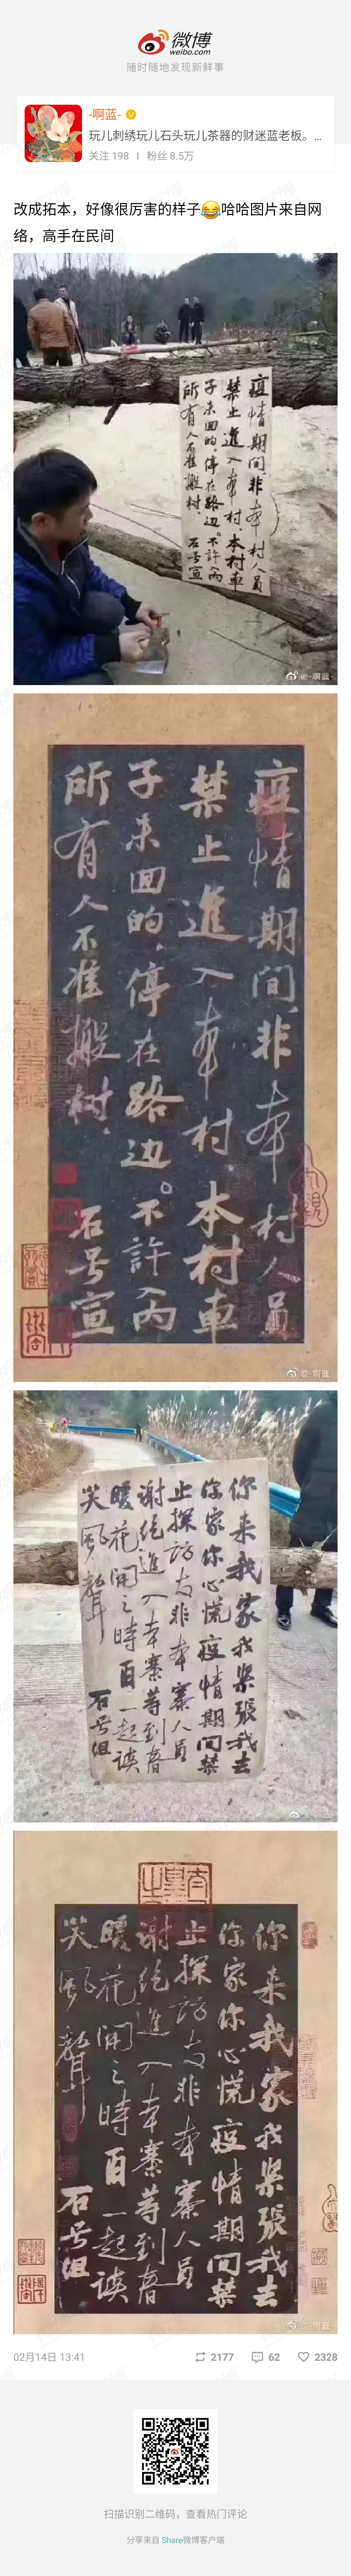 微博
weibo.com
随时随地发现新鲜事
-啊蓝-
玩儿刺绣玩儿石头玩儿茶器的财迷蓝老板。...
关注 198 | 粉丝 8.5万
改成拓本，好像很厉害的样子😂哈哈图片来自网
络，高手在民间
疫情期间非本村人员
禁止進入本村.本村車
子未回的.停在路边.不許丙
所有人不准
石号宣
@-啊蓝-
疫情期间非本村员
禁止進入本村本村車
子未回的停在路边不許丙
所有人不准
石号宣
@-啊蓝-
你来我家我紧張我去
你家你心慌疫情期间禁
上探访友非本寨人员
谢绝進入本寨等到春
暖花開之時百一起谈
笑風聲
石号组
你来我家我紧張我去
你家你心慌疫情期间禁
上探访友非本寨人员
谢绝進入本寨等到春
暖花開之時百一起谈
笑風聲
石号组
@-啊蓝-
02月14日 13:41
2177
62
2328
扫描识别二维码，查看热门评论
分享来自 Share微博客户端